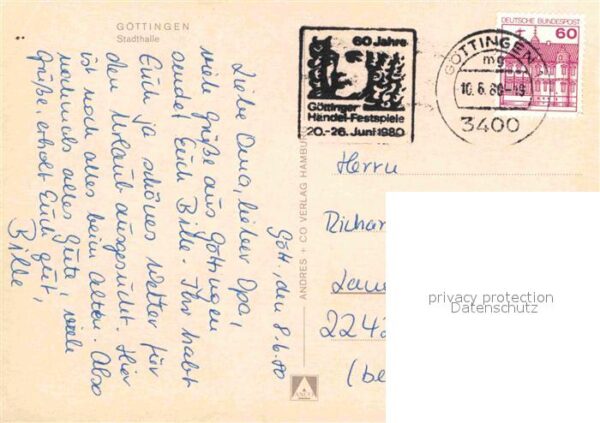 GÖTTINGEN
Stadthalle
Gött., den 8.6.80
Liebe Oma, lieber Opa,
viele Grüße aus Göttingen
sendet Euch Bille. Ihr habt
Euch ja schönes Wetter für
den Urlaub ausgesucht. Hier
ist noch alles beim alten. Also
nochmals alles Gute, viele
Grüße, erholt Euch gut,
Bille
ANDRES + CO VERLAG HAMBURG
60 Jahre
Göttinger
Händel-Festspiele
20.-26. Juni 1980
GÖTTINGEN
mg
10.6.80-19
3400
DEUTSCHE BUNDESPOST
60
Herrn
Richar
2242
(be
privacy protection
Datenschutz